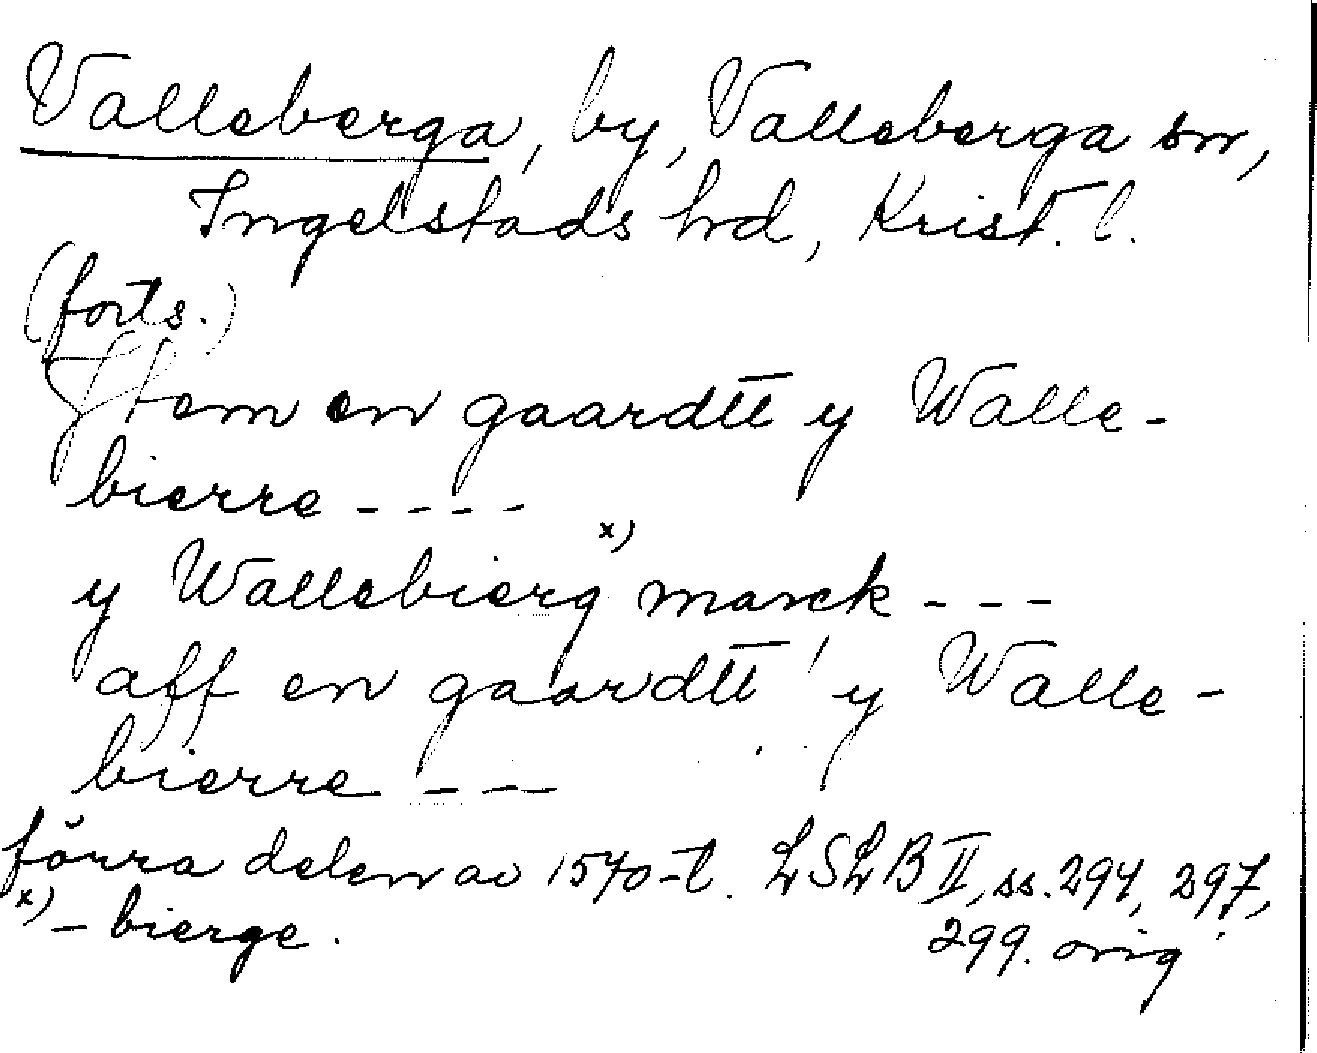 Valleberga, by, Valleberga sn,
Ingelstads hd, Krist. l.
(forts.)
Item en gaardtt y Walle-
bierre ----
y Wallebierg x) marck ---
aff en gaardtt y Walle-
bierre ---
förra delen av 1570-t. LSLB II, ss. 294, 297,
x) -bierge. 299. orig.